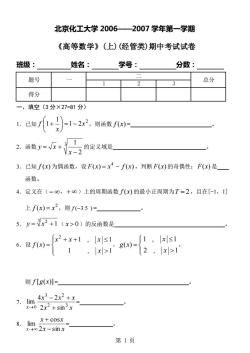 北京化工大学 2006——2007 学年第一学期
《高等数学》(上)(经管类)期中考试试卷
班级： 姓名： 学号： 分数：
题号 一 二 总分
1 2 3
得分
一、填空（3 分×27=81 分）
1．已知 f(1+1/x)=1−2x²，则函数 f(x)= 。
2．函数 y=x+ 的定义域是 。
3．已知 f(x) 为偶函数，设 F(x)=x⁴−f(x)，判断 F(x) 的奇偶性：F(x) 是
函数。
4．定义在（−∞，+∞）上的周期函数 f(x) 的最小正周期为 T=2，且在[-1，1]
上 f(x)=x²，则 f(−3.5)= 。
5．y= +1（x>0）的反函数是 。
6．设 f(x)={x²+x+1，|x|≤1 ; 1，|x|>1，g(x)={1，|x|≤1 ; 2，|x|>1，
则 f[g(x)]= 。
7．lim x→0 (4x³−2x²+x)/(2x²+sin³x)= 。
8．lim x→∞ (x+cosx)/(2x−sinx)= 。
第 1 页